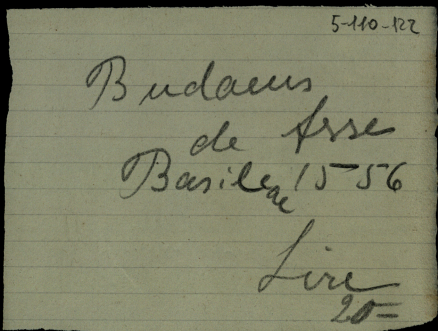 5-110-122
Budaeus
de Asse
Basileae 1556
Lire
20=